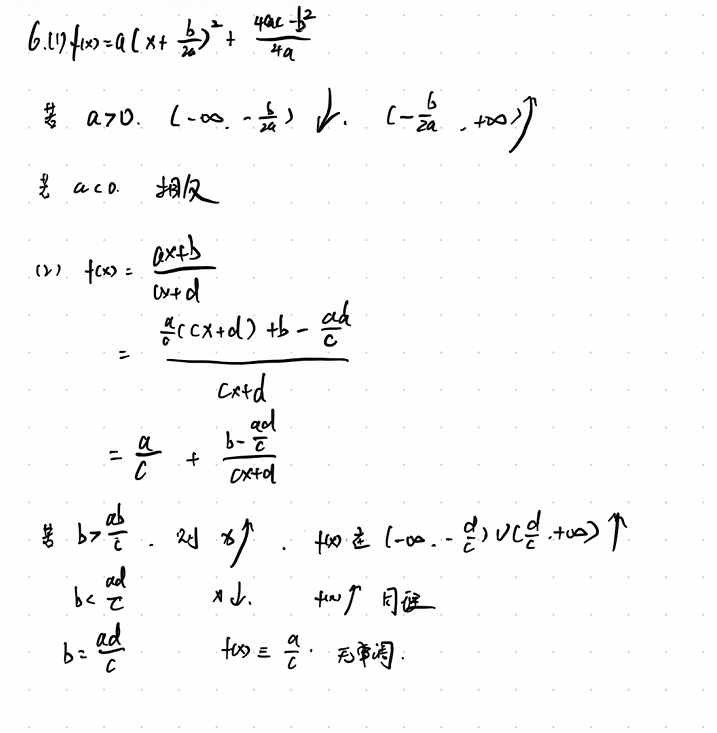 6.(1) f(x)=a(x+b/2a)²+(4ac-b²)/4a
若 a>0. (-∞, -b/2a)↓. (-b/2a, +∞)↑
若 a<0. 相反
(2) f(x)=(ax+b)/(cx+d)
=(a/c(cx+d)+b-ad/c)/(cx+d)
=a/c+(b-ad/c)/(cx+d)
若 b>ab/c. 对 x↑. f(x)在(-∞, -d/c)∪(d/c, +∞)↑
b<ad/c x↓. f(x)↑ 同理
b=ad/c f(x)≡a/c. 无单调.